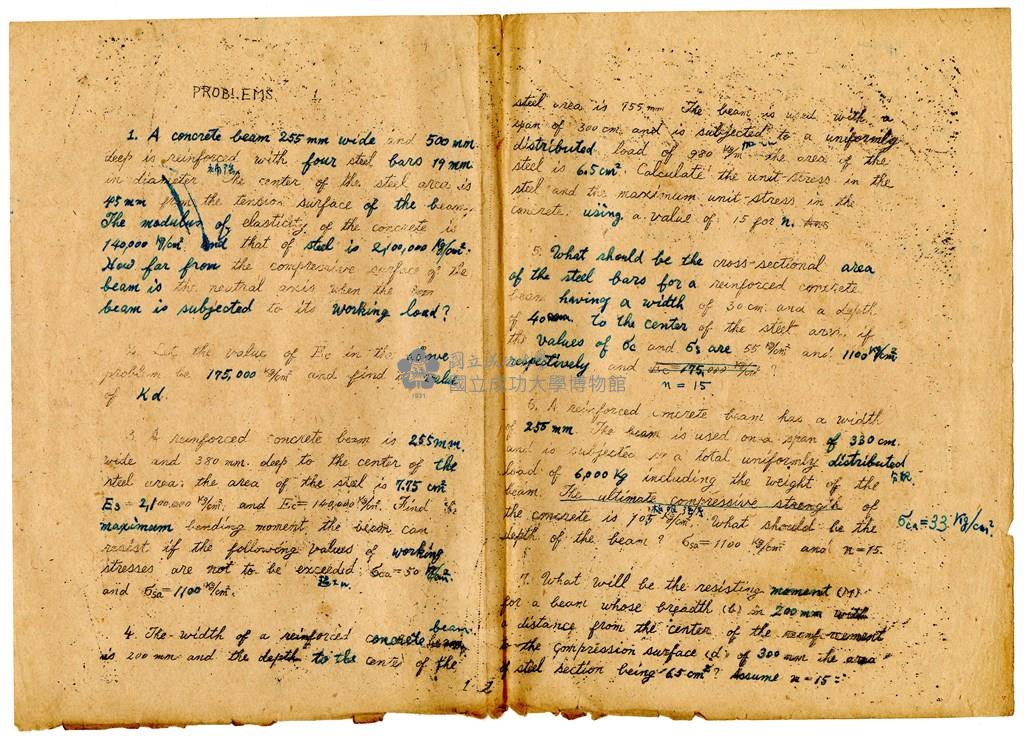 PROBLEMS.
1. A concrete beam 255 mm wide and 500 mm
deep is reinforced with four steel bars 19 mm
in diameter. The center of the steel area is
45 mm from the tension surface of the beam.
The modulus of elasticity of the concrete is
140,000 kg/cm² and that of steel is 2,100,000 kg/cm².
How far from the compressive surface of the
beam is the neutral axis when the
beam is subjected to its working load?
2. Let the value of Ec in the above
problem be 175,000 kg/cm² and find value
of Kd.
3. A reinforced concrete beam is 255 mm.
wide and 380 mm. deep to the center of the
steel area; the area of the steel is 7.75 cm²
Es = 2,100,000 kg/cm², and Ec = 140,000 kg/cm². Find
maximum bending moment the beam can
resist if the following values of working
stresses are not to be exceeded: σca = 50 kg/cm²
and σsa = 1100 kg/cm².
4. The width of a reinforced concrete beam
is 200 mm and the depth to the center of the
1-2
steel area is 755 mm The beam is used with a
span of 300 cm and is subjected to a uniformly
distributed load of 980 kg/m the area of the
steel is 6.5 cm². Calculate the unit stress in the
steel and the maximum unit stress in the
concrete, using a value of 15 for n.
5. What should be the cross-sectional area
of the steel bars for a reinforced concrete
beam having a width of 30 cm and a depth
of 40 cm to the center of the steel area, if
the values of σc and σs are 55 kg/cm² and 1100 kg/cm²
respectively and Ec = 175,000 kg/cm² ?
n = 15
6. A reinforced concrete beam has a width
of 255 mm. The beam is used on a span of 330 cm.
and is subjected to a total uniformly distributed
load of 6,000 kg including the weight of the
beam. The ultimate compressive strength of
the concrete is 105 kg/cm². What should be the
σca = 33 kg/cm²
depth of the beam? σsa = 1100 kg/cm² and n = 15.
7. What will be the resisting moment (M)
for a beam whose breadth (b) is 200 mm with
a distance from the center of the reinforcement
to the compression surface (d) of 300 mm the area
of steel section being 6.5 cm²? Assume n = 15
國立成功大學
國立成功大學博物館
1931